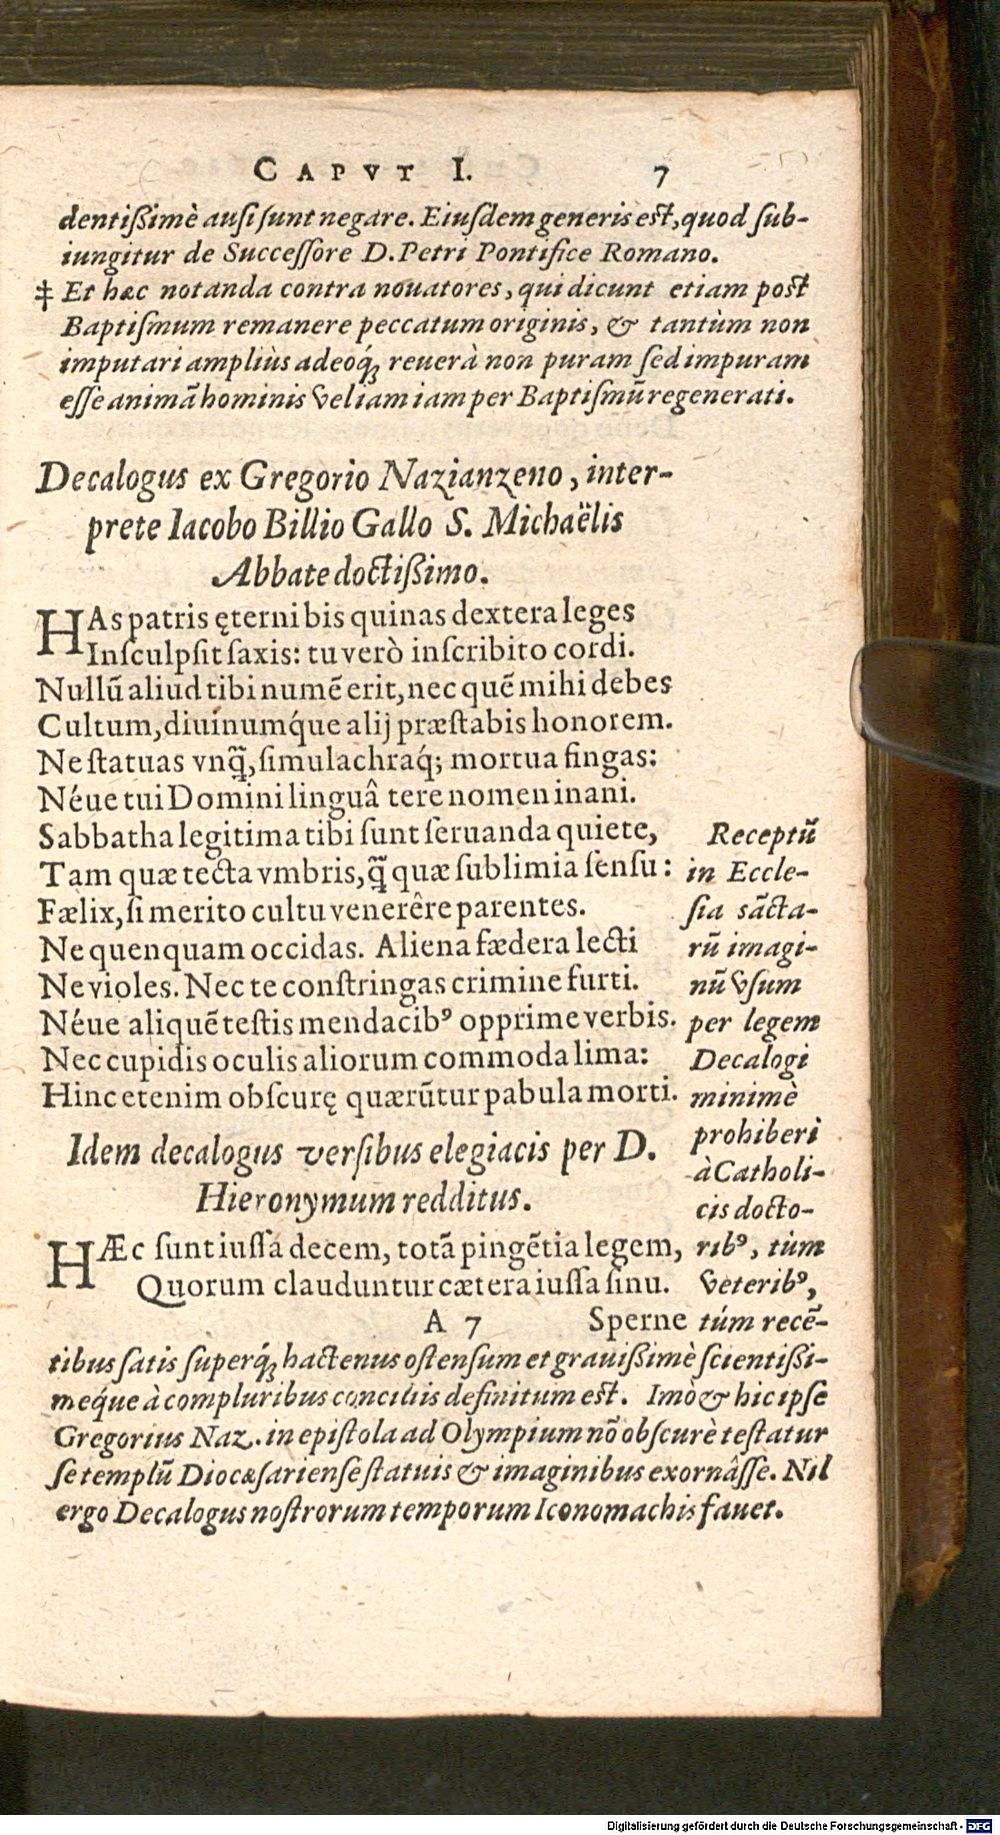 CAPVT I. 7
dentißimè ausi sunt negare. Eiusdem generis est, quod sub-
iungitur de Successore D. Petri Pontifice Romano.
‡ Et hæc notanda contra nouatores, qui dicunt etiam post
Baptismum remanere peccatum originis, & tantùm non
imputari ampliùs adeoq́ꝫ reuerà non puram sed impuram
esse animā hominis vel iam iam per Baptismū regenerati.
Decalogus ex Gregorio Nazianzeno, inter-
prete Iacobo Billio Gallo S. Michaëlis
Abbate doctißimo.
HAs patris ęterni bis quinas dextera leges
Insculpsit saxis: tu verò inscribito cordi.
Nullū aliud tibi numē erit, nec quē mihi debes
Cultum, diuinumq́ue alij præstabis honorem.
Ne statuas vnq̃, simulachraq́; mortua fingas:
Néue tui Domini linguâ tere nomen inani.
Sabbatha legitima tibi sunt seruanda quiete,
Tam quæ tecta vmbris, q̃ quæ sublimia sensu:
Fælix, si merito cultu venerêre parentes.
Ne quenquam occidas. Aliena fædera lecti
Ne violes. Nec te constringas crimine furti.
Néue aliquē testis mendacibꝰ opprime verbis.
Nec cupidis oculis aliorum commoda lima:
Hinc etenim obscurę quærūtur pabula morti.
Idem decalogus versibus elegiacis per D.
Hieronymum redditus.
HÆc sunt iussa decem, totā pingētia legem,
Quorum clauduntur cætera iussa sinu.
A 7 Sperne
Receptū
in Eccle-
sia sācta-
rū imagi-
nū vsum
per legem
Decalogi
minimè
prohiberi
à Catholi-
cis docto-
ribꝰ, tùm
veteribꝰ,
túm recē-
tibus satis superq́ꝫ hactenus ostensum et grauißimè scientißi-
meq́ue à compluribus conciliis definitum est. Imò & hic ipse
Gregorius Naz. in epistola ad Olympium nō obscurè testatur
se templū Diocæsariense statuis & imaginibus exornâsse. Nil
ergo Decalogus nostrorum temporum Iconomachis fauet.
Digitalisierung gefördert durch die Deutsche Forschungsgemeinschaft - DFG